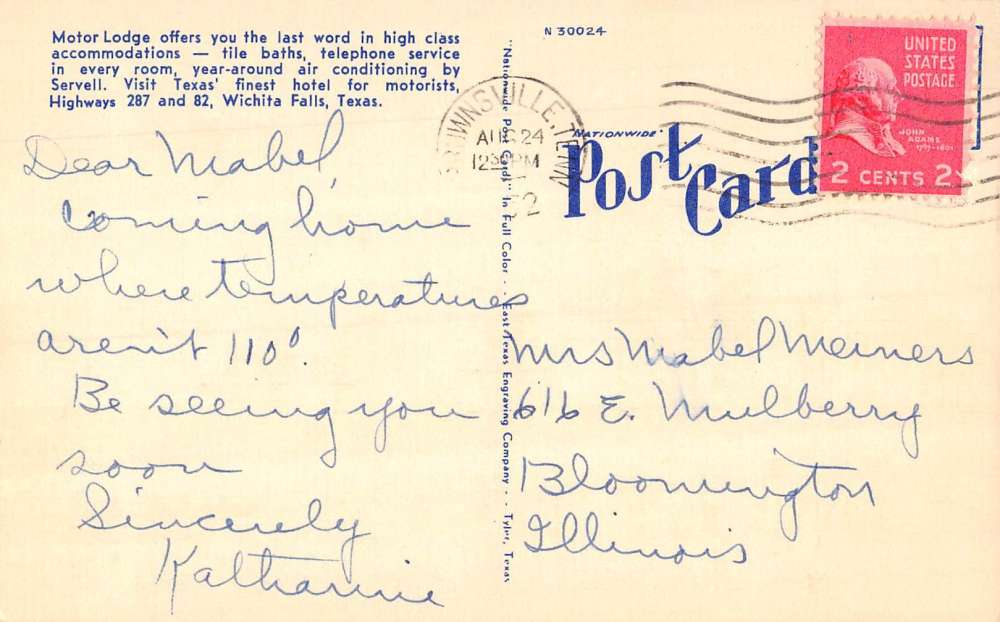 Motor Lodge offers you the last word in high class
accommodations — tile baths, telephone service
in every room, year-around air conditioning by
Servell. Visit Texas' finest hotel for motorists,
Highways 287 and 82, Wichita Falls, Texas.
Dear Mabel,
Coming home
where temperatures
aren't 110°.
Be seeing you
soon
Sincerely
Katharine
"Nationwide Post Cards" In Full Color - - East Texas Engraving Company - - Tyler, Texas
N 30024
BROWNSVILLE, TENN
AUG 24
12 30 PM
"NATIONWIDE"
Post Card
UNITED
STATES
POSTAGE
JOHN
ADAMS
1797-1801
2 CENTS 2
Mrs Mabel Meiners
616 E. Mulberry
Bloomington
Illinois